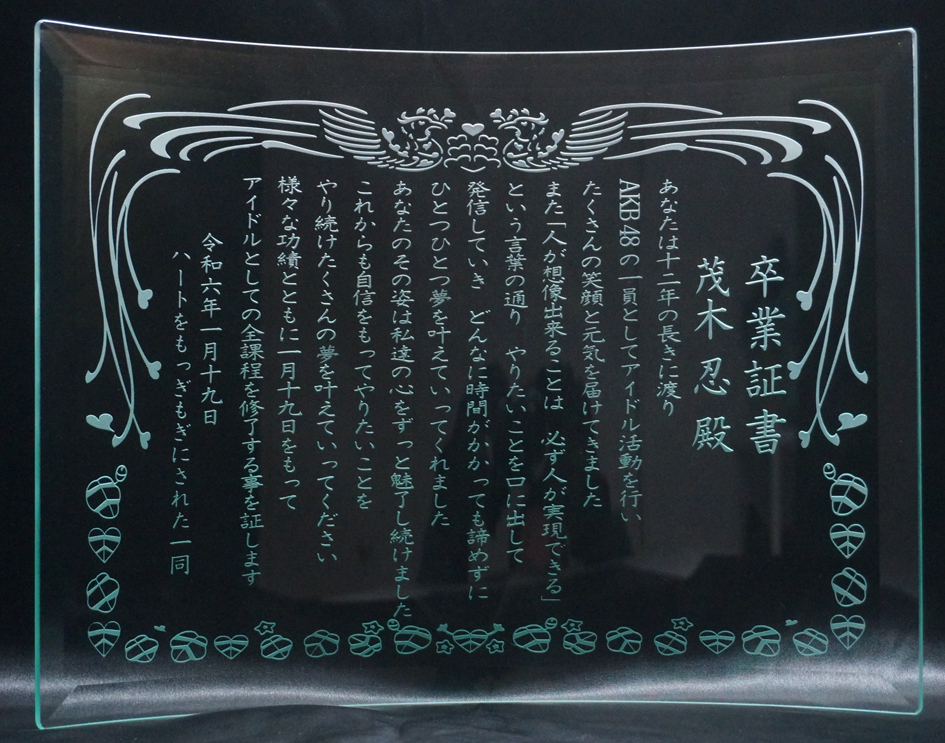 卒業証書
茂木忍殿
あなたは十二年の長きに渡り
AKB48の一員としてアイドル活動を行い
たくさんの笑顔と元気を届けてきました
また「人が想像出来ることは　必ず人が実現できる」
という言葉の通り　やりたいことを口に出して
発信していき　どんなに時間がかかっても諦めずに
ひとつひとつ夢を叶えていってくれました
あなたのその姿は私達の心をずっと魅了し続けました
これからも自信をもってやりたいことを
やり続けたくさんの夢を叶えていってください
様々な功績とともに一月十九日をもって
アイドルとしての全課程を修了する事を証します
令和六年一月十九日
ハートをもっぎもぎにされた一同